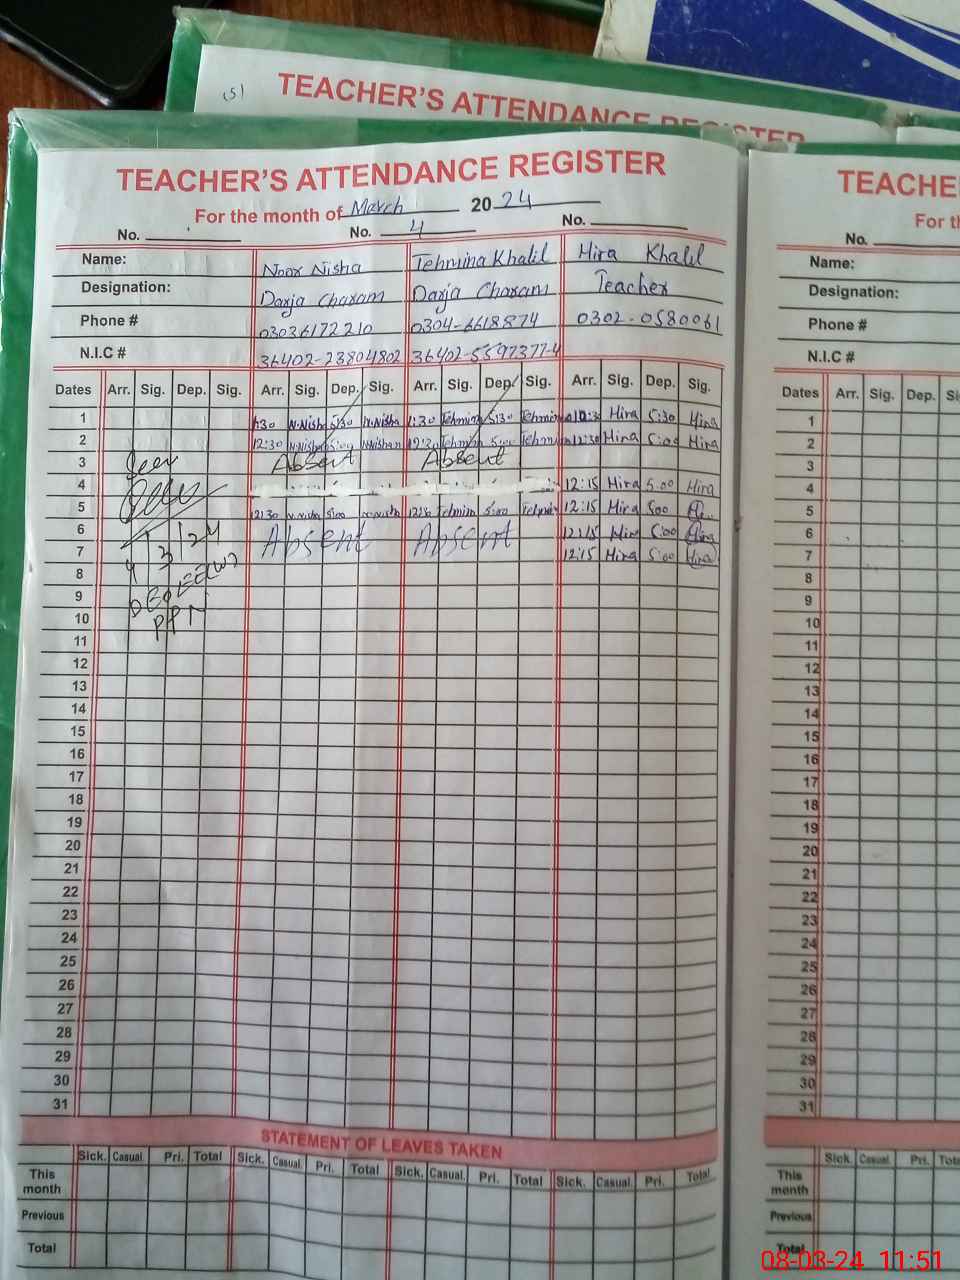 (5)
TEACHER'S ATTENDANCE REGISTER
TEACHER'S ATTENDANCE REGISTER
For the month of March 2024
No. No. 4 No.
Name: Noor Nisha Tehmina Khalil Hira Khalil
Designation: Darja Charam Darja Charam Teacher
Phone # 03036172210 0304-6618874 0302-0580061
N.I.C # 36402-23804802 36402-5597377-4
Dates Arr. Sig. Dep. Sig. Arr. Sig. Dep. Sig. Arr. Sig. Dep. Sig. Arr. Sig. Dep. Sig.
1 1:30 N.Nisha 5:30 N.Nisha 1:30 Tehmina 5:30 Tehmina Hira 5:30 Hira
2 12:30 N.Nisha 5:00 N.Nisha 12:30 Tehmina 5:00 Tehmina 12:30 Hira 5:00 Hira
3 Absent Absent
4 12:15 Hira 5:00 Hira
5 12:30 N.Nisha 5:00 N.Nisha Tehmina 5:00 Tehmina 12:15 Hira 5:00
6 Absent Absent 12:15 Hira 5:00 Hira
7 12:15 Hira 5:00 Hira
Seen
4/3/24
PPN
8
9
10
11
12
13
14
15
16
17
18
19
20
21
22
23
24
25
26
27
28
29
30
31
STATEMENT OF LEAVES TAKEN
Sick. Casual. Pri. Total Sick. Casual. Pri. Total Sick. Casual. Pri. Total Sick. Casual. Pri. Total
This month
Previous
Total
TEACHE
For th
No.
Name:
Designation:
Phone #
N.I.C #
Dates Arr. Sig. Dep. Si
1
2
3
4
5
6
7
8
9
10
11
12
13
14
15
16
17
18
19
20
21
22
23
24
25
26
27
28
29
30
31
Sick. Casual. Pri. Tota
This month
Previous
Total
08-03-24 11:51